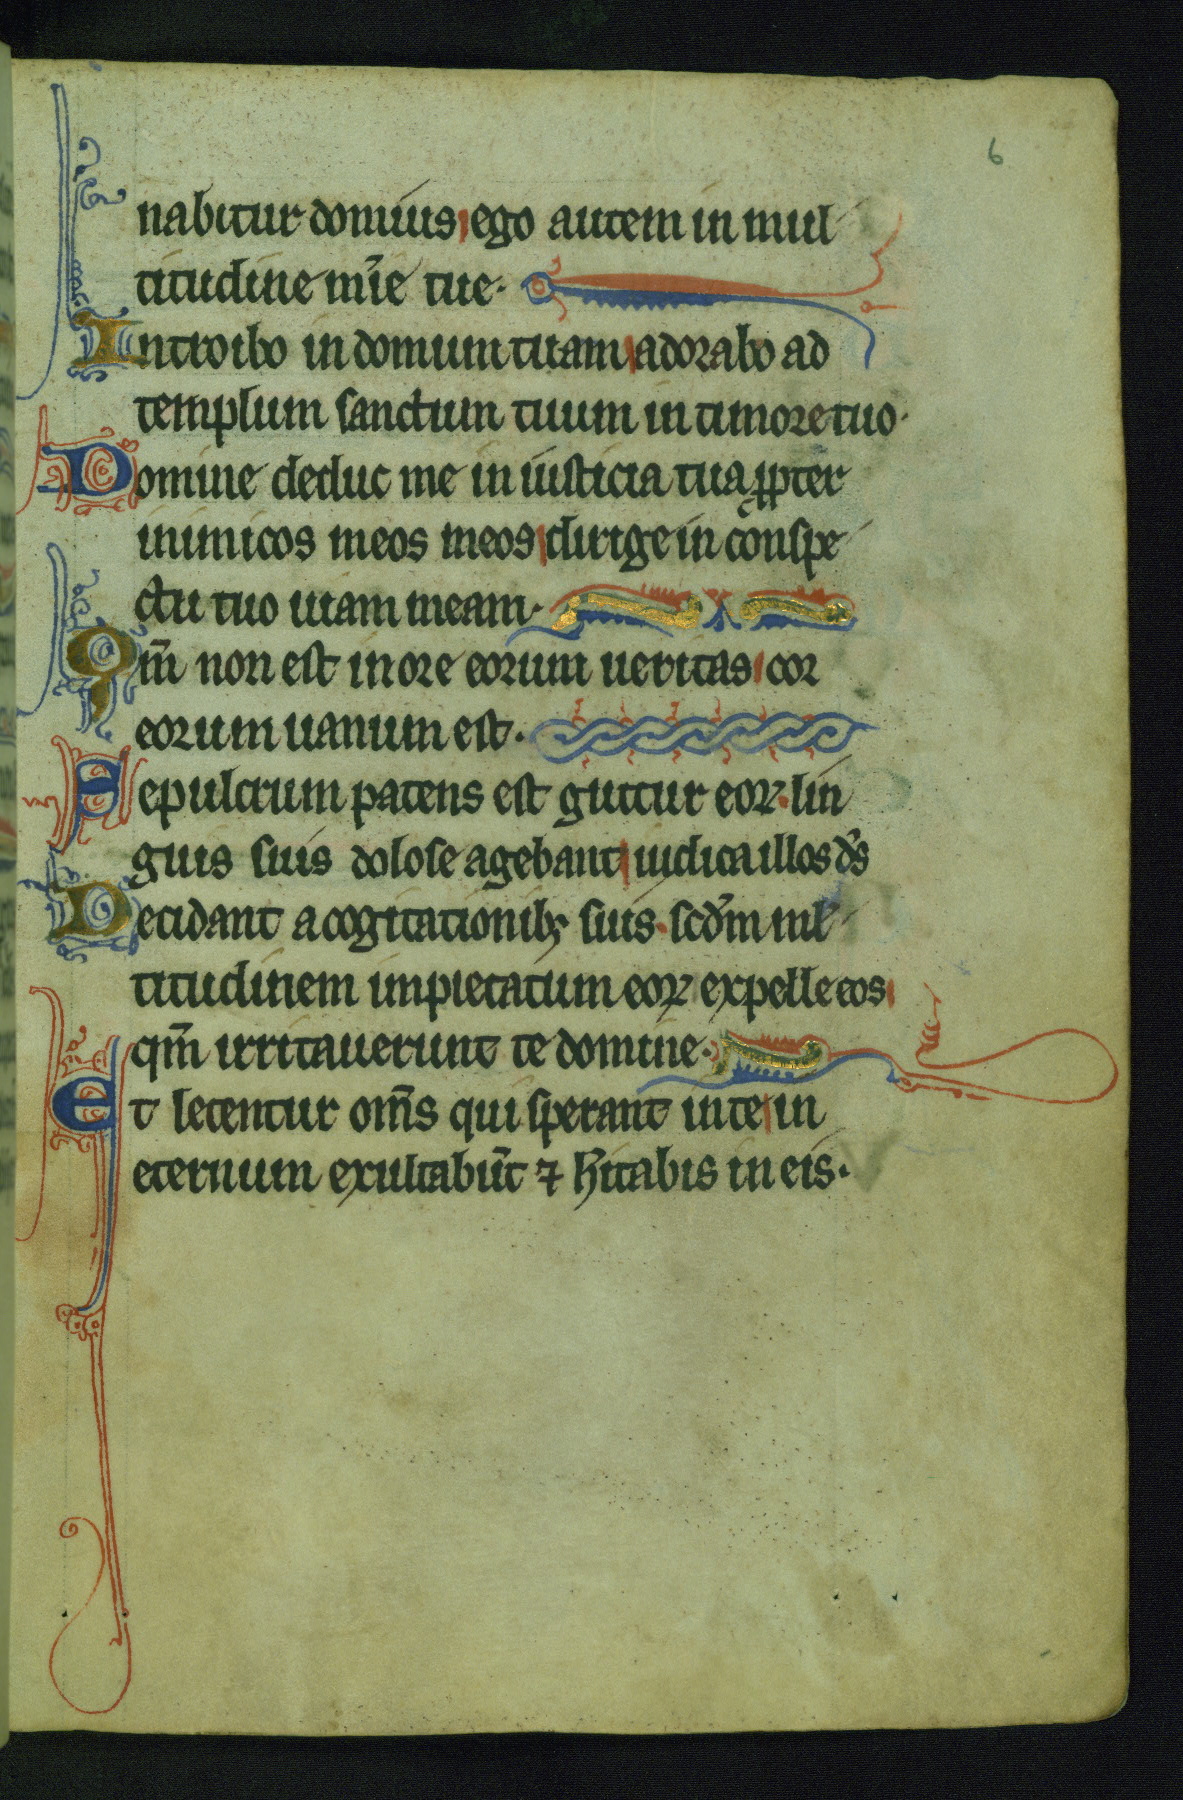 6
nabitur dominus ego autem in mul
titudine mīe tue.
Introibo in domum tuam adorabo ad
templum sanctum tuum in timore tuo.
Domine deduc me in iusticia tua ꝓpter
inimicos meos meos dirige in conspe
ctu tuo uiam meam.
Qm̄ non est in ore eorum ueritas cor
eorum uanum est.
Sepulcrum patens est guttur eoꝝ. lin
guis suis dolose agebant iudica illos ds̄
Decidant a cogitationibꝫ suis. scd̄m mł
titudinem impietatum eoꝝ expelle eos
qm̄ irritauerunt te domine.
Et letentur om̄s qui sperant in te in
eternum exultabūt ⁊ h̄itabis in eis.